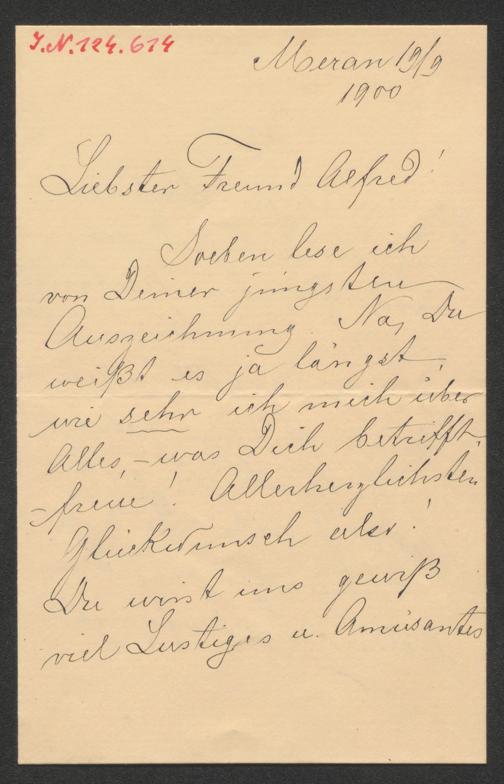 J.N. 124.614
Meran 19/9
1900
Liebster Freund Alfred!
Soeben lese ich
von Deiner jüngsten
Auszeichnung. Na, Du
weißt es ja längst,
wie sehr ich mich über
Alles, – was Dich betrifft,
– freue! Allerherzlichsten
Glückwunsch also!
Du wirst uns gewiß
viel Lustiges u. Amüsantes